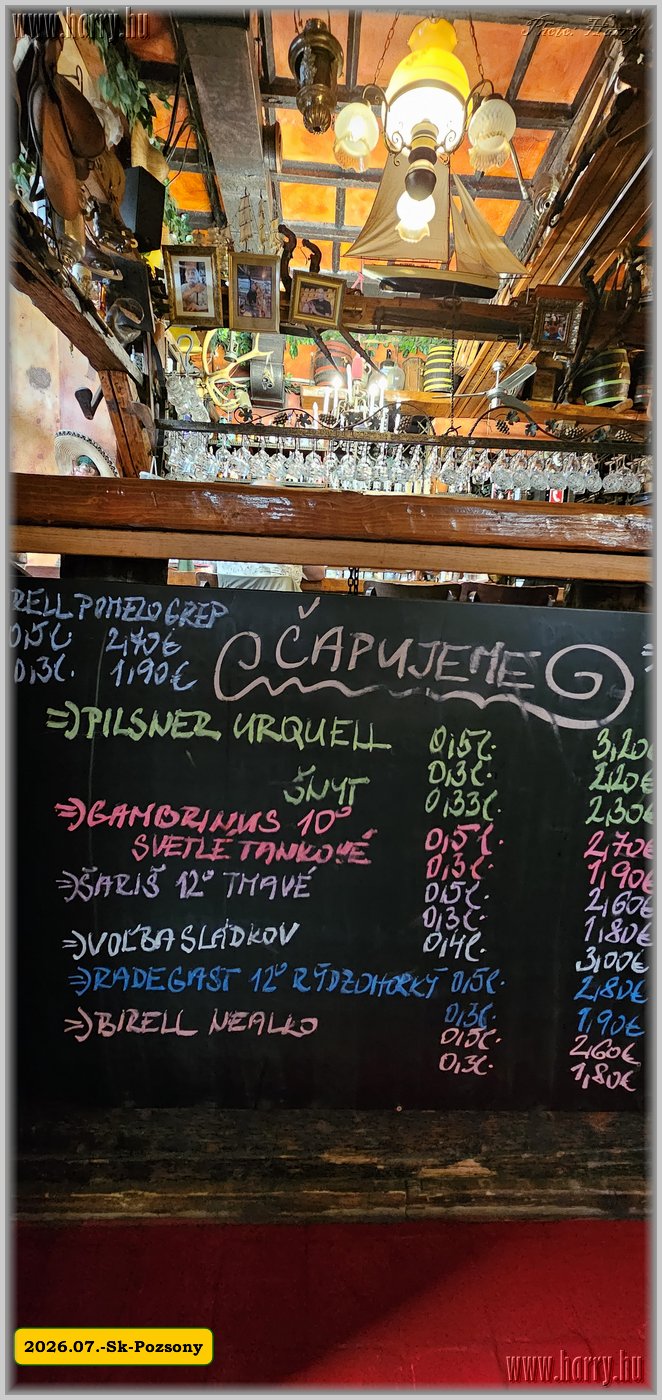 www.horry.hu
Photo: Horry
RELL POMELO GREP
0,5l 2,70€
0,3l. 1,90€
ČAPUJEME
=>PILSNER URQUELL 0,5l. 3,20€
0,3l. 2,20€
ŠNYT 0,33l. 2,30€
=>GAMBRINUS 10° 0,5l. 2,70€
SVETLÉ TANKOVÉ 0,3l. 1,90€
=>ŠARIŠ 12° TMAVÉ 0,5l. 2,60€
0,3l. 1,80€
=>VOĽBA SLÁDKOV 0,4l. 3,00€
=>RADEGAST 12° RÝDZOHORKÝ 0,5l. 2,80€
0,3l. 1,90€
=>BIRELL NEALKO 0,5l. 2,60€
0,3l. 1,80€
2026.07.-Sk-Pozsony
www.horry.hu